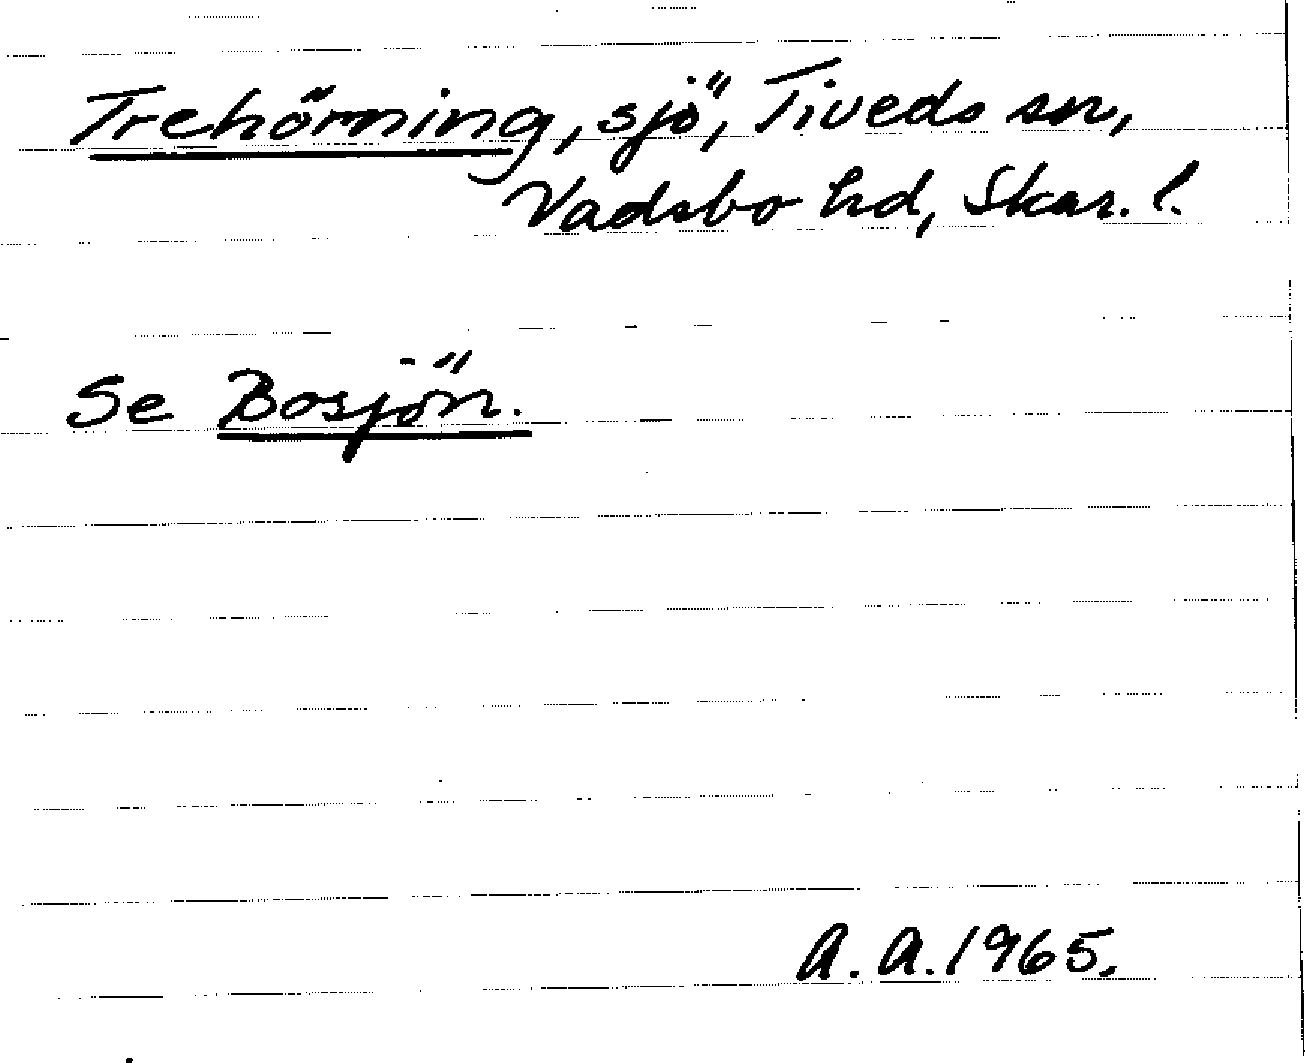 Trehörning, sjö, Tiveds sn,
Vadsbo hd, Skar. l.
Se Bosjön.
A.A. 1965.